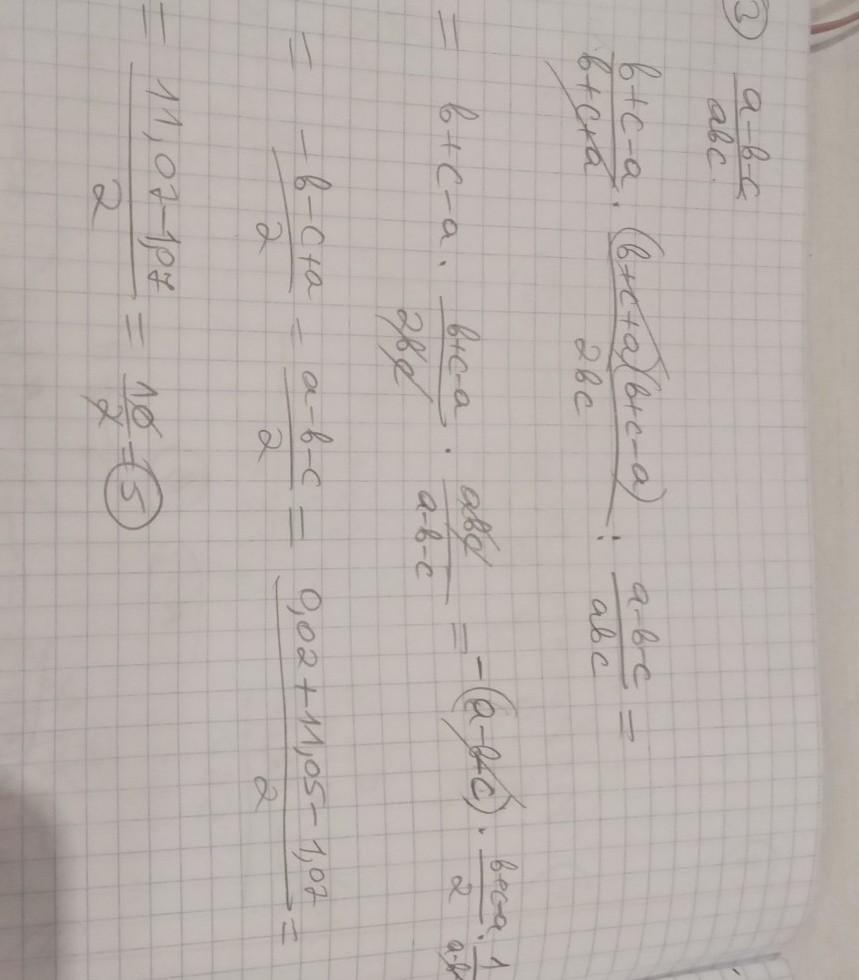 3) (a-b-c)/(abc)
(b+c-a)/(b+c+a) · ((b+c+a)(b+c-a))/(2bc) : (a-b-c)/(abc) =
= b+c-a · (b+c-a)/(2bc) · (abc)/(a-b-c) = -(a-b+c) · (b+c-a)/2 · 1/
= -(b-c+a)/2 = (a-b-c)/2 = (0,02+11,05-1,07)/2 =
= (11,07-1,07)/2 = 10/2 = 5